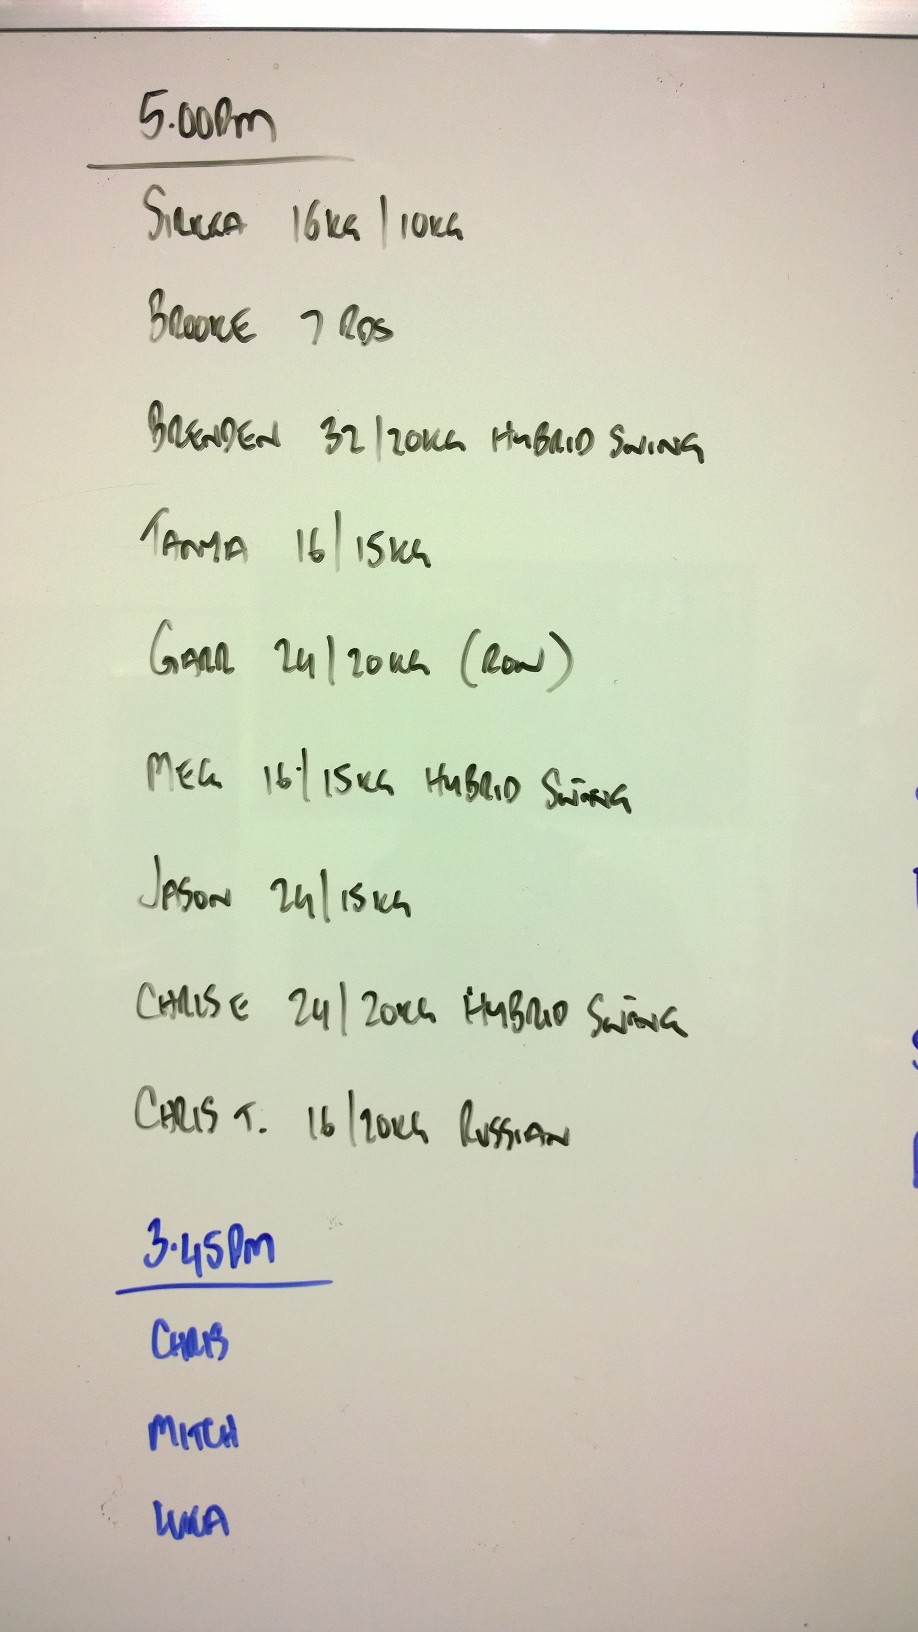 5.00PM
SIRKKA 16KG | 10KG
BROOKE 7 RDS
BRENDEN 32/20KG HYBRID SWING
TANYA 16/15KG
GARR 24/20KG (ROW)
MEG 16/15KG HYBRID SWING
JASON 24/15KG
CHRIS E 24/20KG HYBRID SWING
CHRIS T. 16/20KG RUSSIAN
3.45PM
CHRIS
MITCH
LUKA